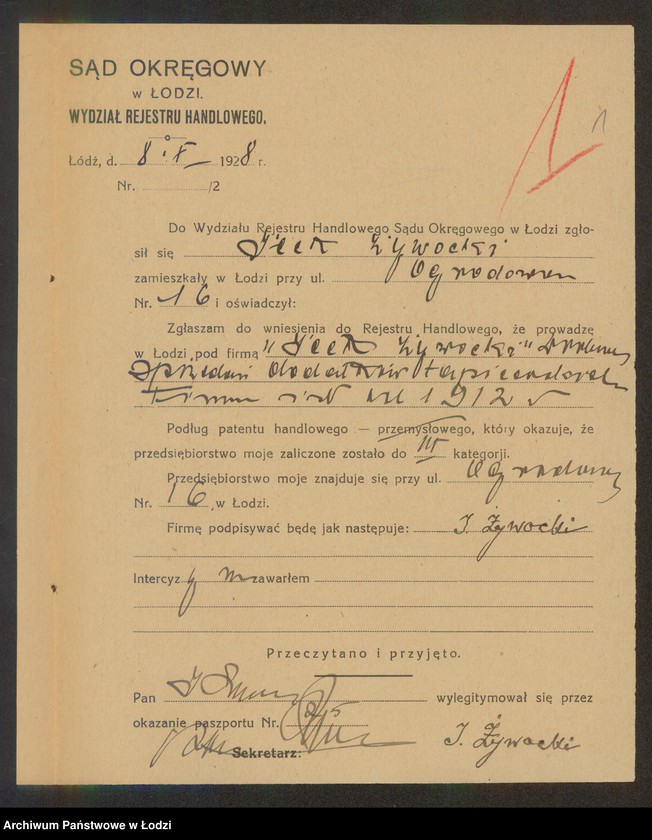 SĄD OKRĘGOWY
w ŁODZI.
WYDZIAŁ REJESTRU HANDLOWEGO.
Łódź, d. 8. X 1928 r.
Nr. /2
1
Do Wydziału Rejestru Handlowego Sądu Okręgowego w Łodzi zgło-
sił się Icek Żywocki
zamieszkały w Łodzi przy ul. Ogrodowa
Nr. 16 i oświadczył:
Zgłaszam do wniesienia do Rejestru Handlowego, że prowadzę
w Łodzi pod firmą "Icek Żywocki" drobną
sprzedaż dodatków tapicerskich
Firma istn. od 1912 r
Podług patentu handlowego — przemysłowego, który okazuje, że
przedsiębiorstwo moje zaliczone zostało do III kategorji.
Przedsiębiorstwo moje znajduje się przy ul. Ogrodowej
Nr. 16, w Łodzi.
Firmę podpisywać będę jak następuje: I. Żywocki
Intercyzy nie zawarłem
Przeczytano i przyjęto.
Pan wylegitymował się przez
okazanie paszportu Nr.
I. Żywocki
Sekretarz:
Archiwum Państwowe w Łodzi